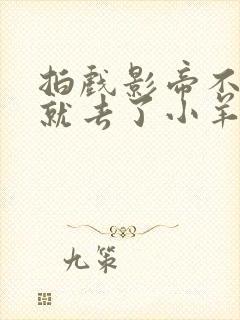 拍戏影帝不
就去了小羊
九策